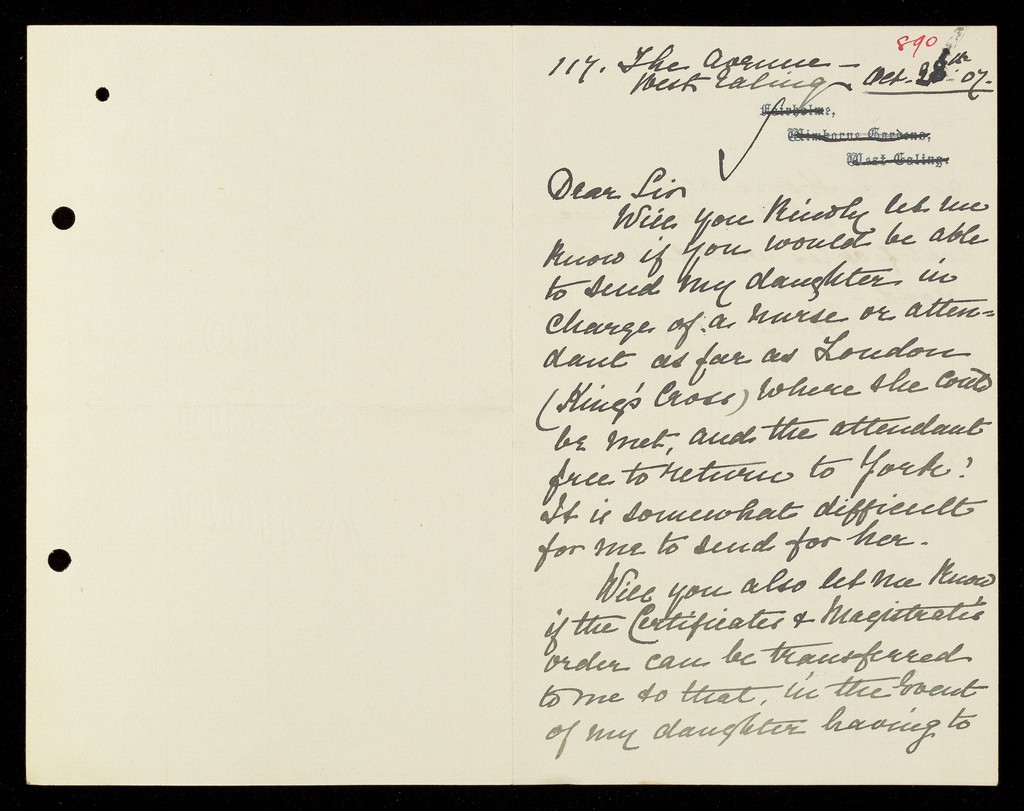 890
117. The Avenue –
West Ealing Oct. th 07.
Fairholme,
Wimborne Gardens,
West Ealing.
Dear Sir
Will you kindly let me
know if you would be able
to send my daughter in
charge of a nurse or atten=
dant as far as London
(King's Cross) where she could
be met, and the attendant
free to return to York?
It is somewhat difficult
for me to send for her.
Will you also let me know
if the Certificates & Magistrate's
order can be transferred
to me so that, in the event
of my daughter having to